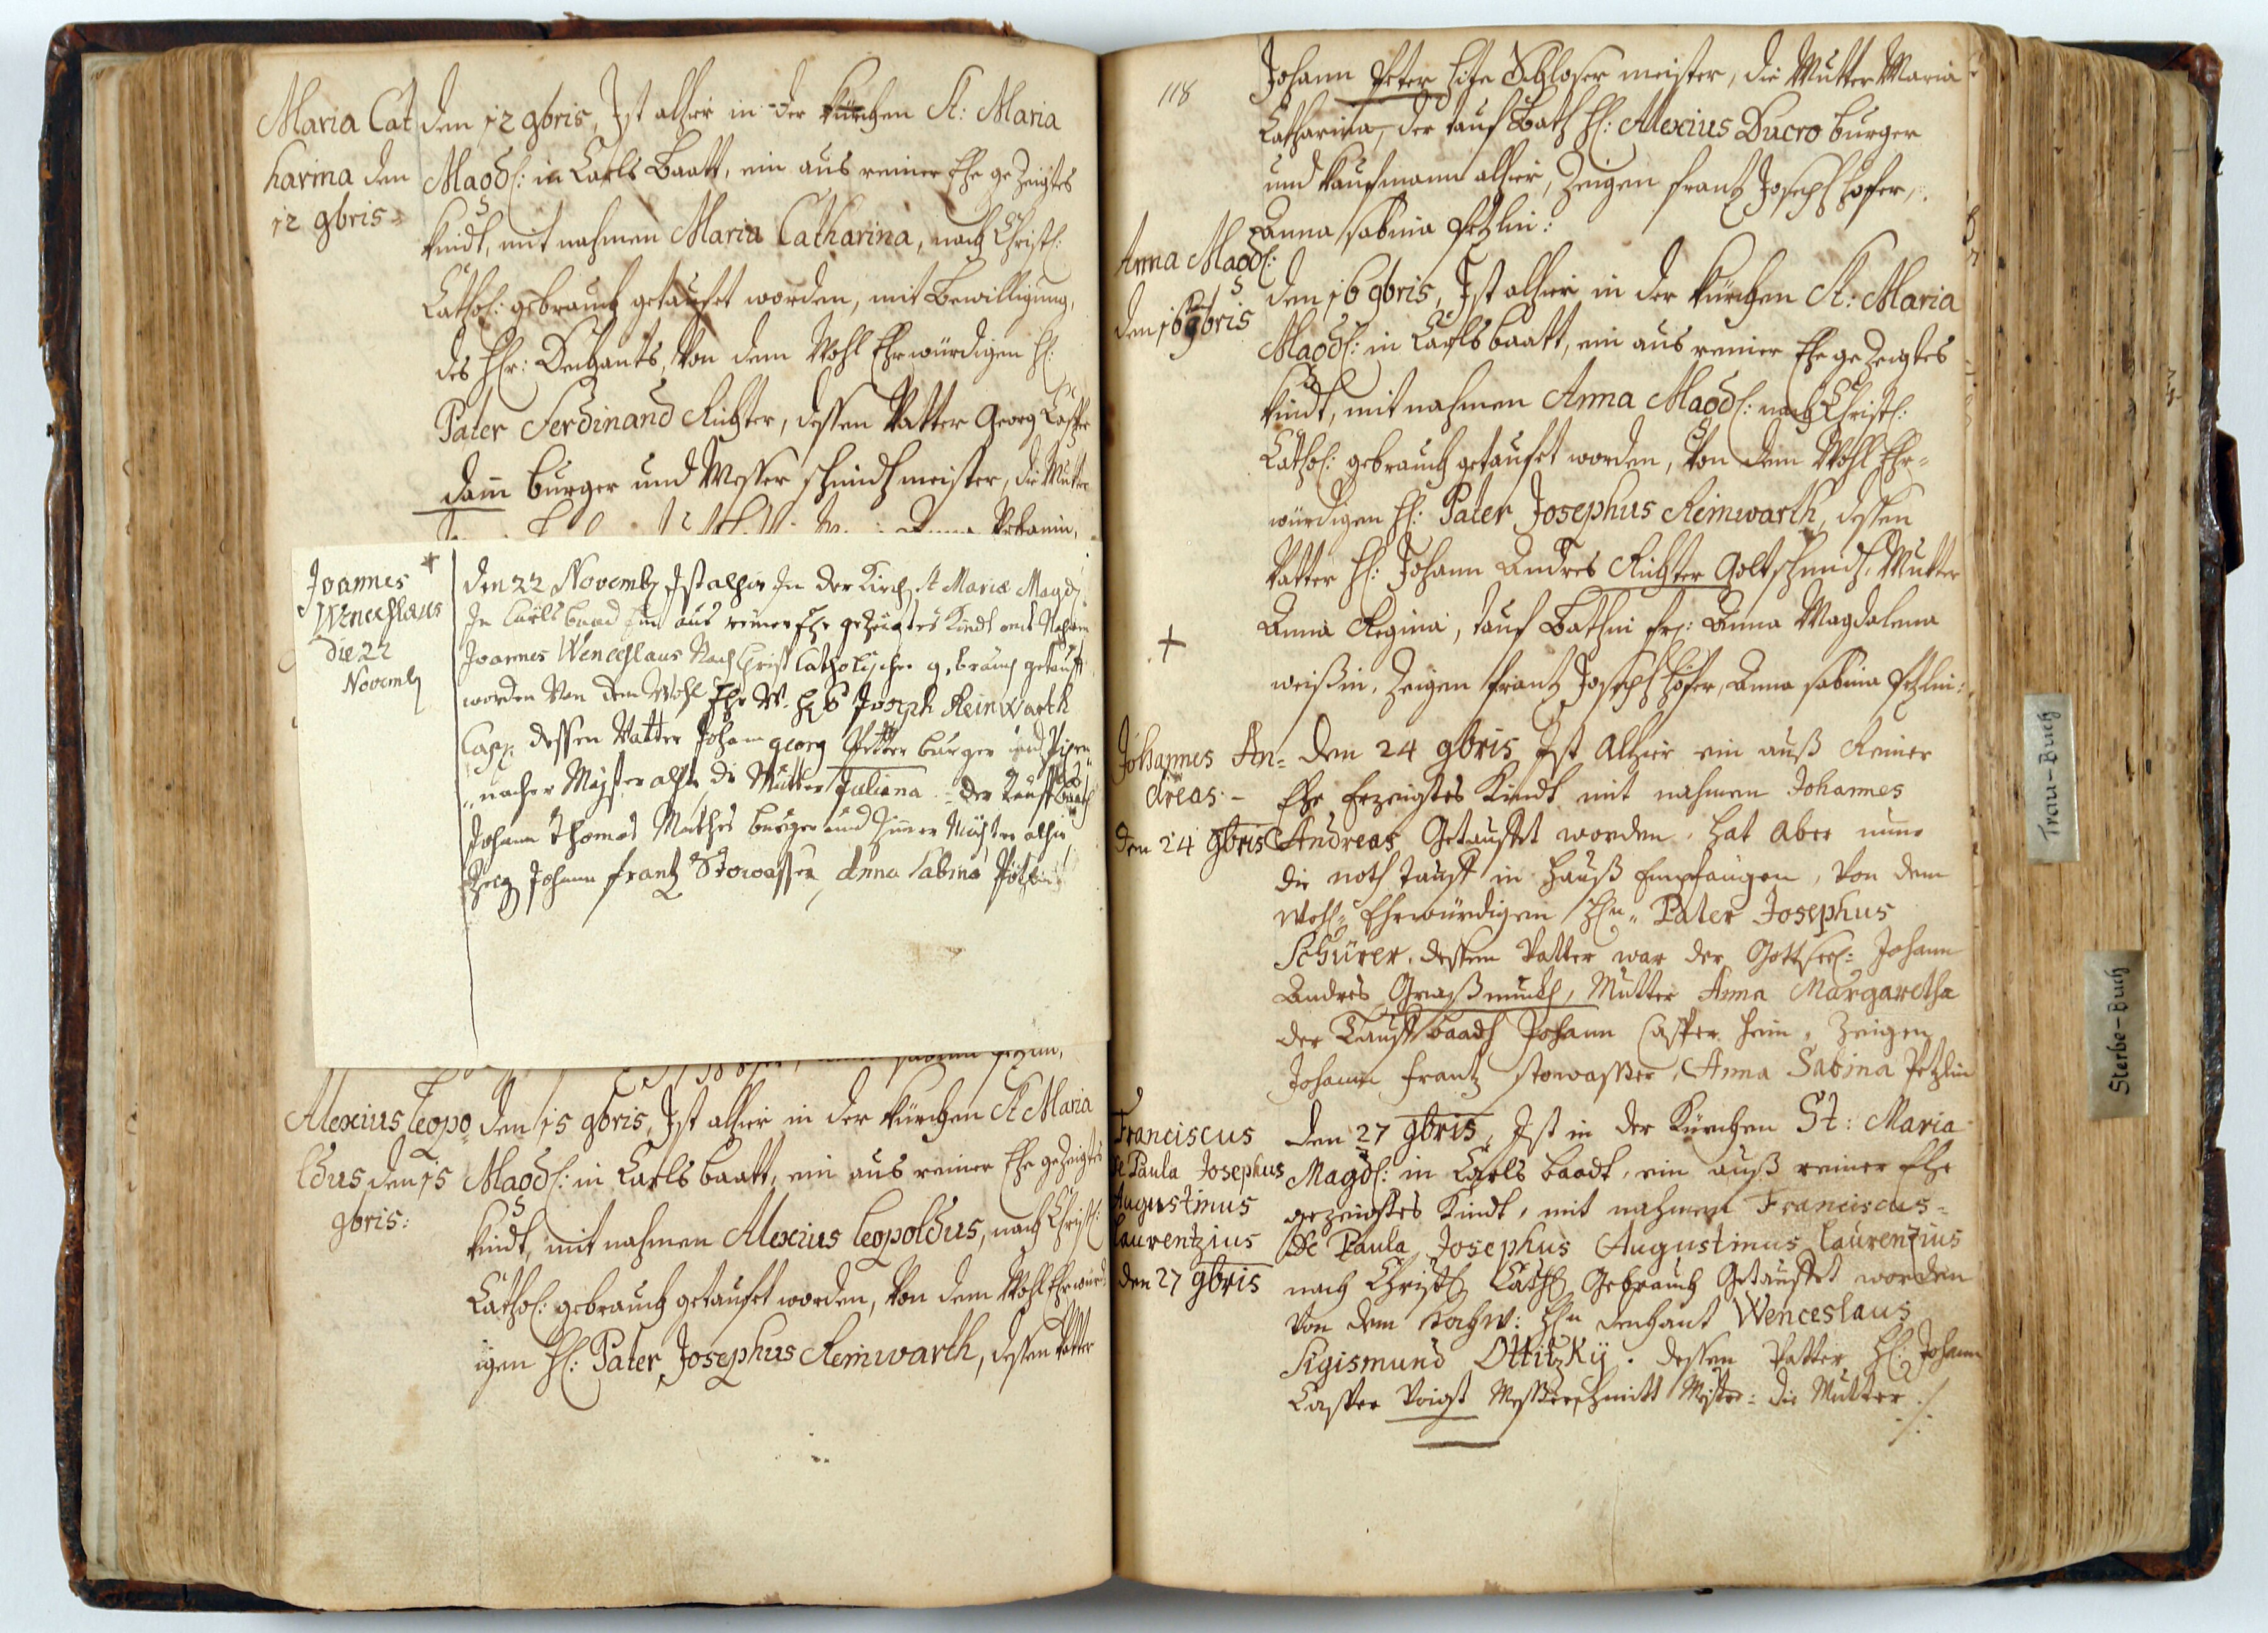 Maria Cat
harina den
12 gbris
den 12 gbris, Ist alhier in der kürchen St: Maria
Magdl: in Carls Baatt, ein aus reiner Ehe gezeigtes
kindt, mit nahmen Maria Catharina, nach Christl:
Cathol: gebrauch getaufet worden, mit Bewilligung,
des Hhr: Dechants, Von dem Wohl Ehrwürdigen H:
Pater Ferdinand Richter, dessen Vatter Georg Casper
Damm burger und Messer schmidt meister, die Mutter
Joannes *
Wenceslaus
Die 22
Novemb
den 22 Novemb Ist alhier In der Kirch St Mariæ Magd:
In Carlsbaad Ein aus reiner Ehe gezeigtes Kindt mit Nahmen
Joannes Wenceslaus Nach Christ Catholischen gebrauch getaufft
worden Von dem Wohl Ehr W. H. P Joseph Reinwarth
Capp: dessen Vatter Johann georg Petter burger und
macher Mayster alhir die Mutter Juliana der Tauff baath
Johann Thomas Mathes burger und Zinner Mayster alhir,
Zeig Johann frantz Stowasser, Anna Sabina
Alexius Leopo
ldus, den 15
gbris:
den 15 gbris, Ist alhier in der kürchen St Maria
Magdl: in Carls baatt, ein aus reiner Ehe gezeigtes
kindt, mit nahmen Alexius Leopoldus, nach Christl:
Cathol: gebrauch getaufet worden, Von dem Wohl Ehrwürd
igen H: Pater Josephus Reinwarth, dessen Vatter
118
Johann Peter hite Schloser meister, die Mutter Maria
Catharina, der tauf Bath H: Alexius Ducro burger
und kaufmann alhier, Zeigen frantz Joseph hofer,
anna sabina Petzlin:
Anna Magdl:
den 16 gbris
den 16 gbris, Ist alhier in der kürchen St: Maria
Magdl: in Carlsbaatt, ein aus reiner Ehe gezeigtes
kindt, mit nahmen Anna Magdl: nach Christl:
Cathol: gebrauch getaufet worden, Von dem Wohl Ehr=
würdigen H: Pater Josephus Reinwarth, dessen
Vatter H: Johann Andres Richter Goltschmidt, Mutter
Anna Regina, tauf Bathin fr: Anna Magdalena
+
weißin, Zeigen frantz Joseph hofer, Anna sabina Petzlin:
Johannes An=
dreas. -
den 24 gbris
Den 24 gbris Ist Alhier ein auß Reiner
Ehe Erzeigtes Kindt mit nahmen Johannes
Andreas Getaufft worden, hat Aber nur
die noth Tauff in Hauß Empfangen, Von dem
Wohl= Ehrwürdigen Hn. Pater Josephus
Schürer, dessen Vatter war der Gottseel= Johann
Andres Graßmuck, Mutter Anna Margaretha
der Tauff baath Johann Casper Hein, Zeigen
Johann frantz stowasser, Anna Sabina Petzlin
Franciscus
de Paula Josephus
Augustinus
Laurentzius
den 27 gbris
den 27 gbris, Ist in der Kürchen St: Maria
Magdl: in Carls baadt, ein auß reiner Ehe
gezeigtes Kindt, mit nahmen Franciscus=
De Paula Josephus Augustinus Laurenzius
nach Christl Cathl Gebrauch Getauffet worden
Von dem Hochw: Hn dechant Wenceslaus
Sigismund Ottitzky. dessen Vatter H: Johann
Casper Voigt Messerschmitt Mster= die Mutter ./.
Trau-Buch
Sterbe-Buch